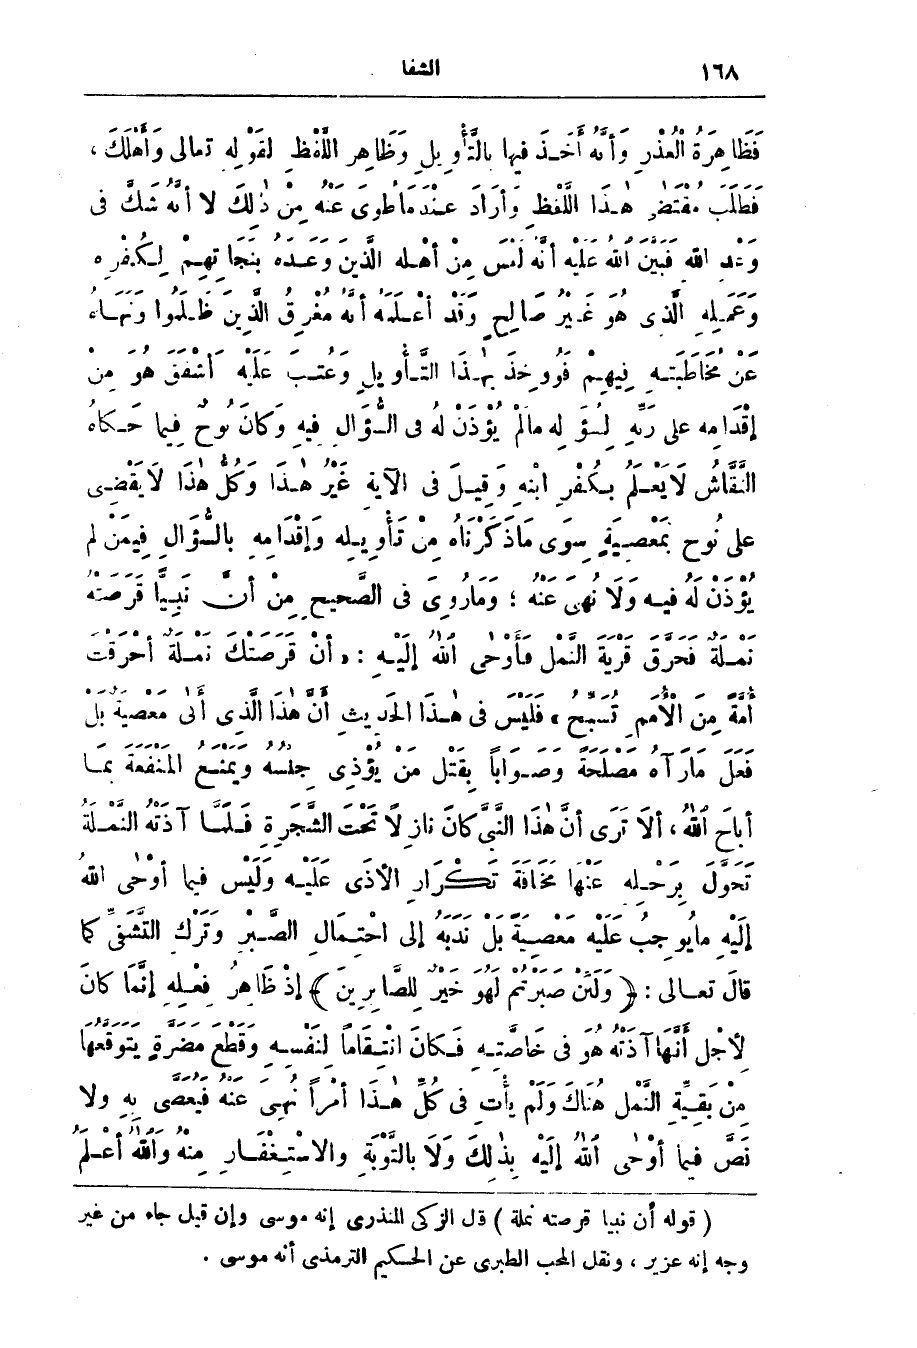 ١٦٨ الشفا
فَظَاهِرَةُ الْعُذْرِ وَأَنَّهُ أَخَذَ فيها بالتَّأْوِيلِ وَظَاهِرِ اللَّفْظِ لقَوْلِه تعالى وَأَهْلَكَ ،
فَطَلَبَ مُقْتَضَى هٰذَا اللَّفْظِ وَأَرَادَ عِنْدَ مَا طُوِىَ عَنْهُ مِنْ ذٰلِكَ لا أنَّهُ شَكَّ فى
وَعْدِ الله فَبَيَّنَ اللهُ عَلَيْهِ أنَّهُ لَيْسَ مِنْ أهْلِه الَّذِينَ وَعَدَهُ بِنَجَاتِهِمْ لِكُفْرِه
وَعَمَلِهِ الَّذِى هُوَ غَيْرُ صَالِحٍ وَقَدْ أعْلَمَهُ أنَّهُ مُغْرِقُ الَّذِينَ ظَلَمُوا وَنَهَاهُ
عَنْ مُخَاطَبَتِهِ فِيهِمْ فَوُوخِذَ بِهٰذَا التَّأْوِيلِ وَعُتِبَ عَلَيْهِ وَأَشْفَقَ هُوَ مِنْ
إقْدَامِه على رَبِّهِ لِسُؤَالِه مالَمْ يُؤْذَنْ لَهُ فى السُّؤَالِ فِيهِ وَكَانَ نُوحٌ فِيمَا حَكَاهُ
النَّقَّاشُ لَا يَعْلَمُ بِكُفْرِ ابْنِهِ وَقِيلَ فى الآيَةِ غَيْرُ هٰذَا وَكُلُّ هٰذَا لَا يَقْضِى
على نُوحٍ بِمَعْصِيَةٍ سِوَى مَا ذَكَرْنَاهُ مِنْ تَأْوِيلِه وَإقْدَامِهِ بِالسُّؤَالِ فِيمَنْ لم
يُؤْذَنْ لَهُ فِيهِ وَلَا نُهِىَ عَنْهُ ؛ وَمَا رُوِىَ فى الصَّحِيحِ مِنْ أنَّ نَبِيًّا قَرَصَتْهُ
نَمْلَةٌ فَحَرَّقَ قَرْيَةَ النَّمْلِ فَأَوْحٰى اللهُ إِلَيْهِ : «أنْ قَرَصَتْكَ نَمْلَةٌ أحْرَقْتَ
أُمَّةً مِنَ الْأُمَمِ تُسَبِّحُ» فَلَيْسَ فى هٰذَا الحَدِيثِ أنَّ هٰذَا الَّذِى أتٰى مَعْصِيَةٌ بَلْ
فَعَلَ مَا رَآهُ مَصْلَحَةً وَصَوَاباً بِقَتْلِ مَنْ يُؤْذِى جِنْسُهُ وَيَمْنَعُ الْمَنْفَعَةَ بِمَا
أباحَ اللهُ ، ألاَ تَرَى أنَّ هٰذَا النَّبِىَّ كَانَ نازِلاً تَحْتَ الشَّجَرَةِ فَلَمَّا آذَتْهُ النَّمْلَةُ
تَحَوَّلَ بِرَحْلِه عَنْهَا مَخَافَةَ تَكْرَارِ الأذَى عَلَيْهِ وَلَيْسَ فيما أوْحٰى اللهُ
إِلَيْهِ ما يُوجِبُ عَلَيْهِ مَعْصِيَةً بَلْ نَدَبَهُ إلى احْتِمَالِ الصَّبْرِ وَتَرْكِ التَّشَفِّى كما
قَالَ تعالى : ﴿ وَلَئِنْ صَبَرْتُمْ لَهُوَ خَيْرٌ للصَّابِرِينَ ﴾ إذْ ظَاهِرُ فِعْلِهِ إنَّمَا كَانَ
لِأَجْلِ أنَّهَا آذَتْهُ هُوَ فى خَاصَّتِهِ فَكَانَ انْتِقَاماً لِنَفْسِهِ وَقَطْعَ مَضَرَّةٍ يَتَوَقَّعُهَا
مِنْ بَقِيَّةِ النَّمْلِ هُنَاكَ وَلَمْ يَأْتِ فى كُلِّ هٰذَا أمْراً نُهِىَ عَنْهُ فَيُعَصَّى بِهِ ولا
نَصَّ فيما أوْحٰى اللهُ إلَيْهِ بِذٰلِكَ وَلَا بالتَّوْبَةِ والاسْتِغْفَارِ مِنْهُ وَاللهُ أعْلَمُ
( قوله أن نبيا قرصته نملة ) قال الزكى المنذرى إنه موسى وإن قيل جاء من غير
وجه إنه عزير ، ونقل المحب الطبرى عن الحكيم الترمذى أنه موسى .